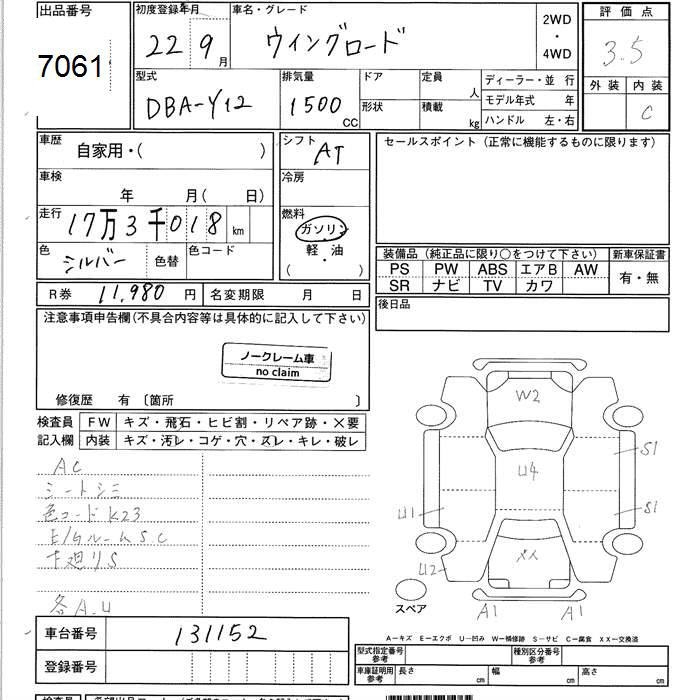 出品番号
7061
初度登録年月
22 9月
車名・グレード
ウイングロード
2WD
・
4WD
評価点
3.5
外装 内装
C
型式
DBA-Y12
排気量
1500 CC
ドア
形状
定員 人
積載 kg
ディーラー・並行
モデル年式 年
ハンドル 左・右
車歴
自家用・( )
車検
年 月( 日)
走行
17万3千018 km
色
シルバー
色替
色コード
シフト
AT
冷房
燃料
ガソリン
・
軽・油
( )
セールスポイント(正常に機能するものに限ります)
装備品(純正品に限り○をつけて下さい)
PS PW ABS エアB AW
SR ナビ TV カワ
新車保証書
有・無
後日品
R券 11,980 円
名変期限 月 日
注意事項申告欄(不具合内容等は具体的に記入して下さい)
ノークレーム車
no claim
修復歴 有 〔箇所 〕
検査員
記入欄
FW キズ・飛石・ヒビ割・リペア跡・×要
内装 キズ・汚レ・コゲ・穴・スレ・キレ・破レ
AC
シートシミ
色コード K23
E/Gルーム S C
下廻り S
各 A.U
W2
U4
S1
S1
U1
U2
XX
A1
A1
スペア
A-キズ E-エクボ U-凹み W-補修跡 S-サビ C-腐食 XX-交換済
車台番号 131152
登録番号
型式指定番号
参考
種別区分番号
参考
車庫証明用
参考
長さ cm
幅 cm
高さ cm